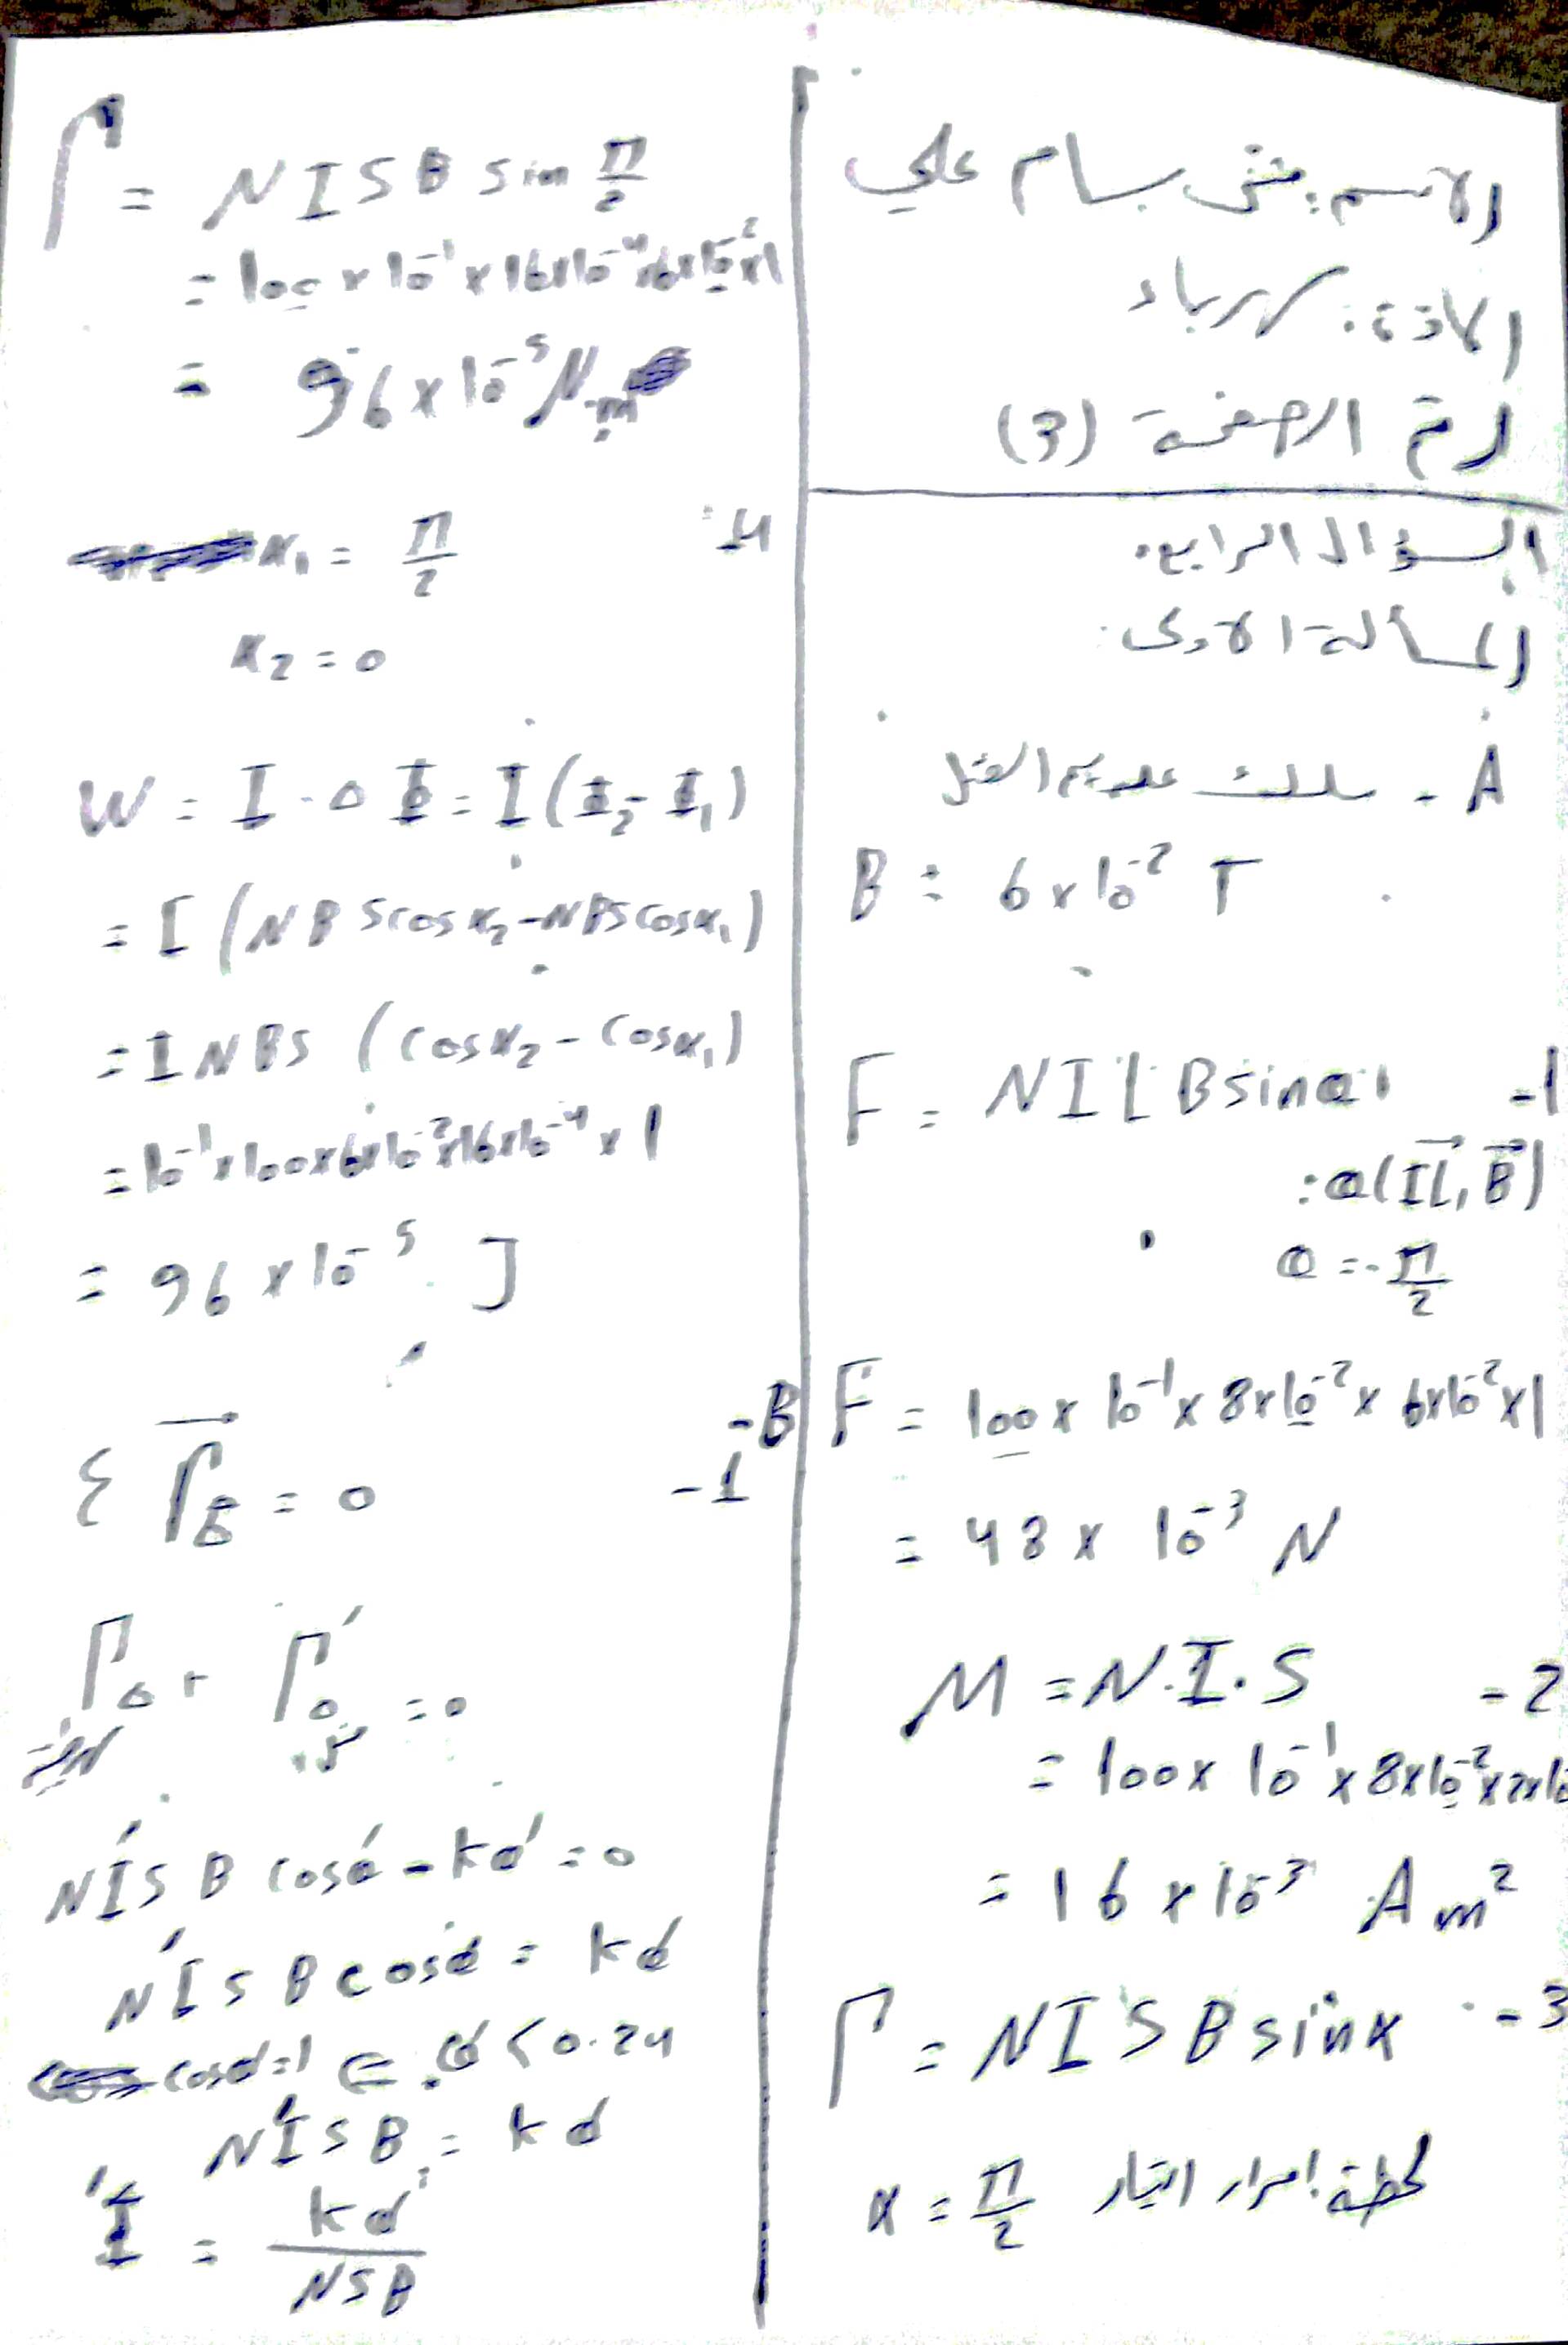 الاسم: مثنى بسام علي
المادة: كهرباء
رقم الصفحة (3)
السؤال الرابع:
المسألة الاولى:
A - سلك عديم الفتل
B = 6×10⁻² T
F = NILB sinθ -1
: θ(I\vec{L}, \vec{B})
θ = π/2
F = 100 × 10⁻¹ × 8×10⁻² × 6×10⁻² × 1
= 48 × 10⁻³ N
M = N.I.S -2
= 100 × 10⁻¹ × 8×10⁻² × 2×10
= 16 × 10⁻³ A m²
Γ = NISB sinα -3
لحظة امرار التيار α = π/2
Γ = NISB sin π/2
= 100 × 10⁻¹ × 16×10⁻⁴ × 6×10⁻² × 1
= 96 × 10⁻⁵ N.m
α₁ = π/2 -4
α₂ = 0
W = I.ΔΦ = I(Φ₂ - Φ₁)
= I(NBS cosα₂ - NBS cosα₁)
= INBS (cosα₂ - cosα₁)
= 10⁻¹ × 100 × 6×10⁻² × 16×10⁻⁴ × 1
= 96 × 10⁻⁵ J
-B
Σ \vec{Γ}_Δ = 0 -1
Γ_Δ + Γ'_Δ = 0
NI'SB cosθ' - kθ' = 0
NI'SB cosθ' = kθ'
cosθ' = 1 ⇐ θ' < 0.24
NI'SB = kθ'
I' = kθ' / NSB